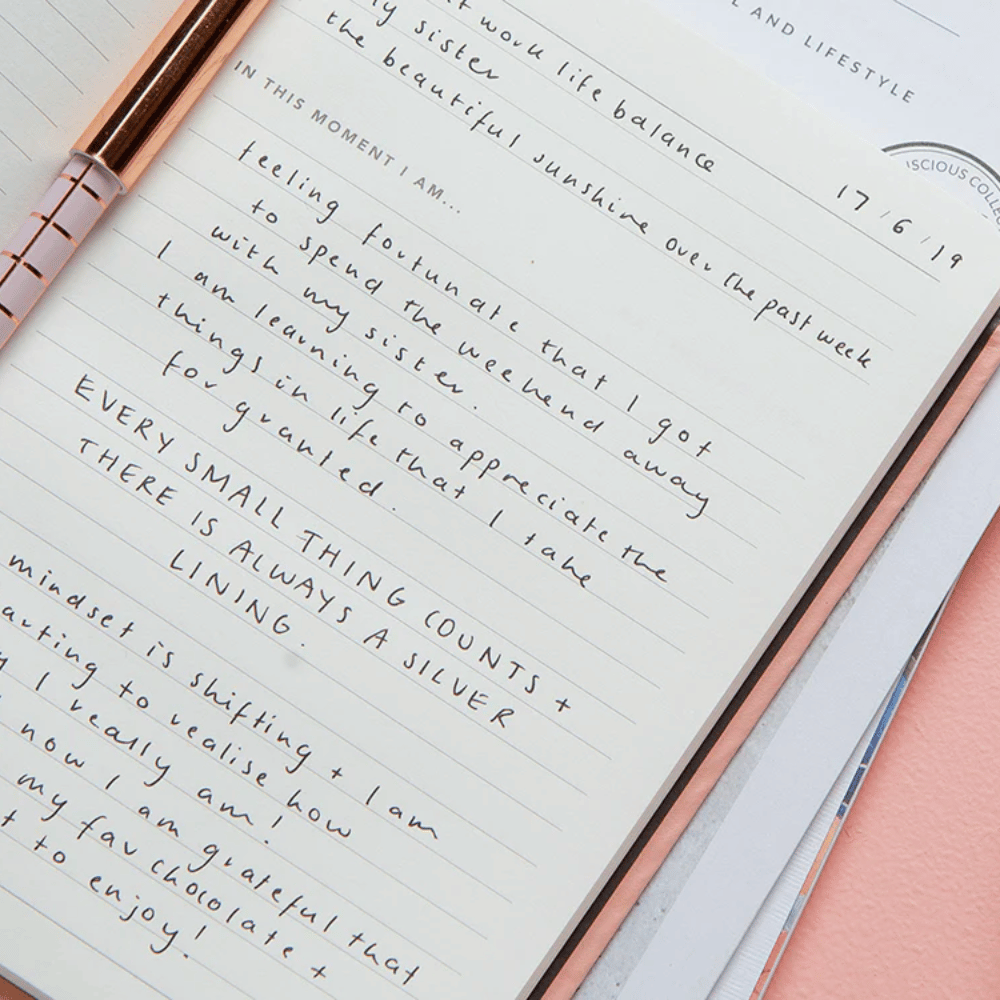 work life balance
sister
the beautiful sunshine over the past week
17/6/19
IN THIS MOMENT I AM...
feeling fortunate that I got
to spend the weekend away
with my sister.
I am learning to appreciate the
things in life that I take
for granted.
EVERY SMALL THING COUNTS +
THERE IS ALWAYS A SILVER
LINING.
mindset is shifting + I am
to realise how
I really am!
now I am grateful that
my fav chocolate +
to enjoy!
AND LIFESTYLE